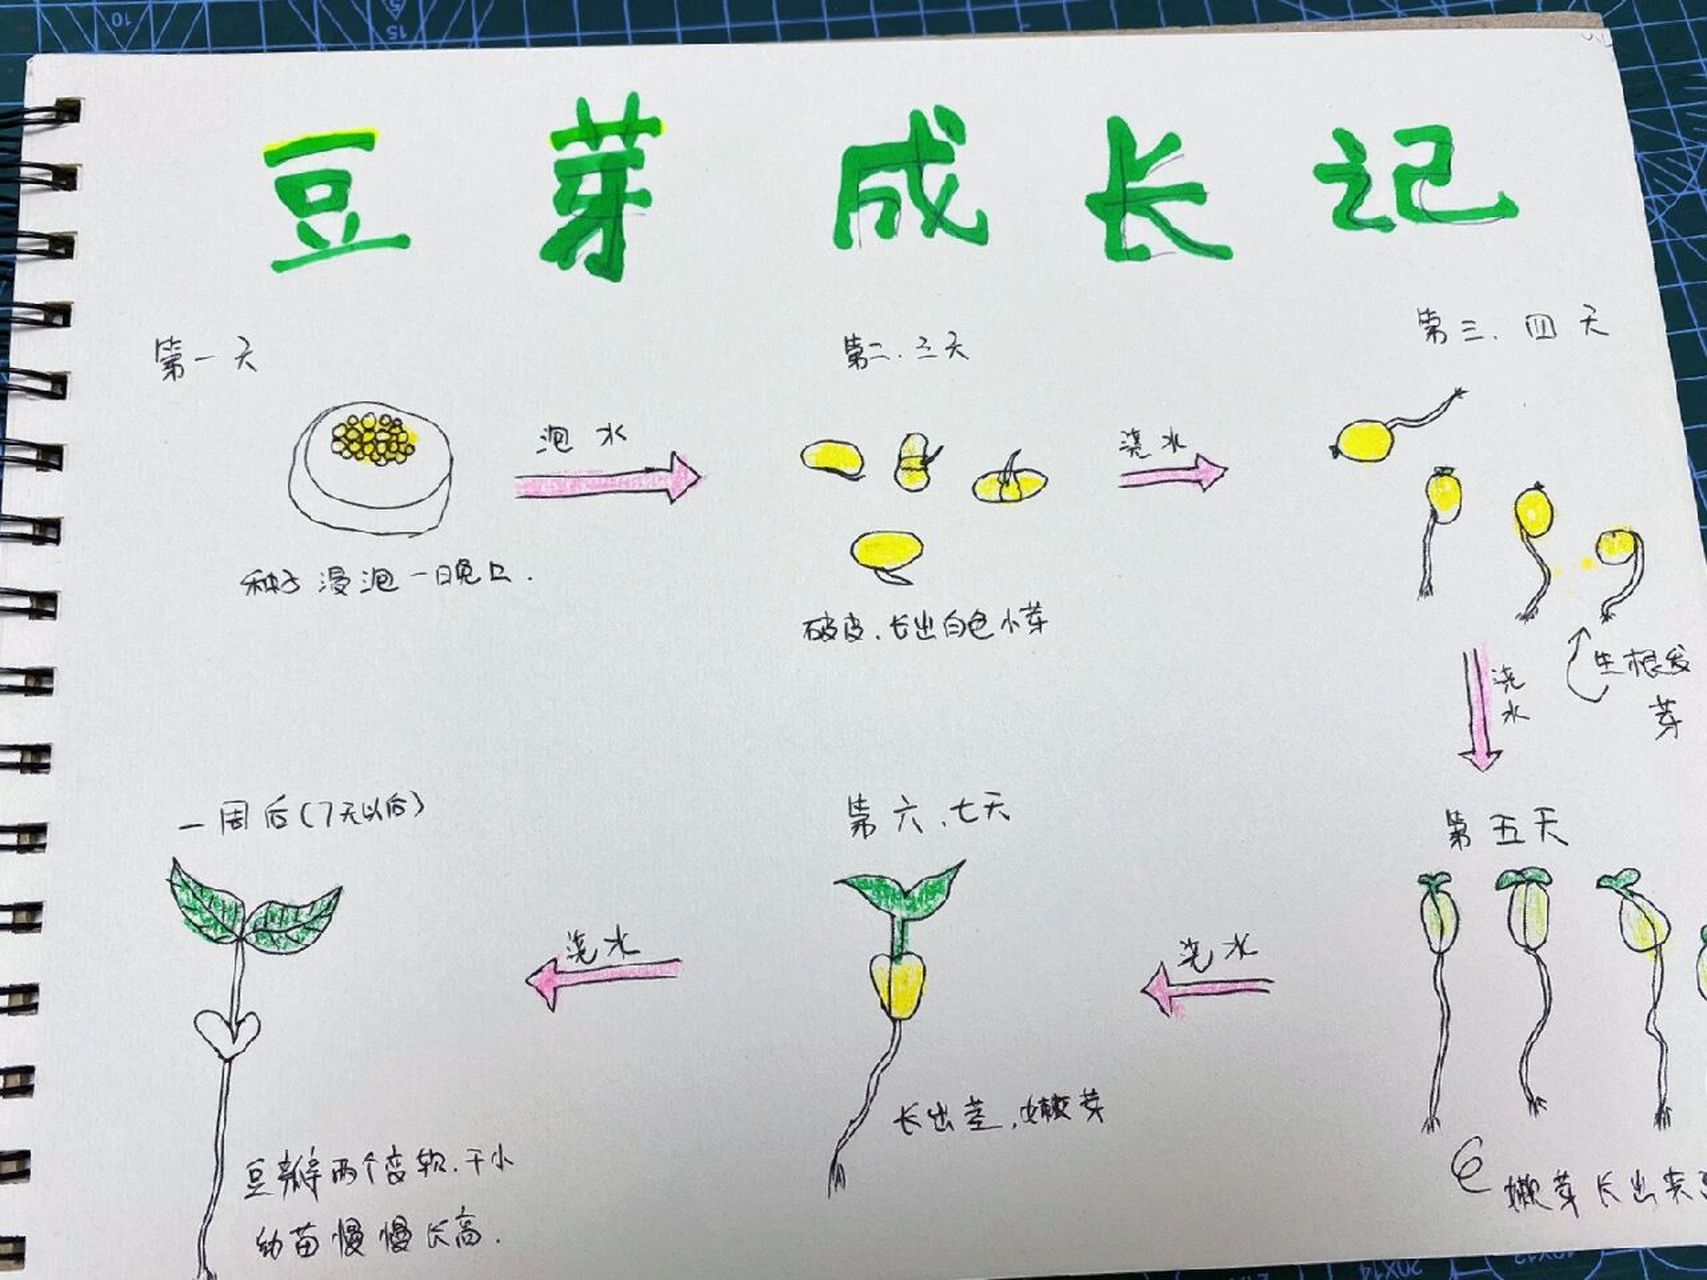 豆芽成长记
第一天
泡水
种子浸泡一晚上.
第二.三天
浇水
破皮.长出白色小芽
第三.四天
生根发
芽
浇
水
第五天
嫩芽长出来
浇水
第六.七天
长出茎.嫩芽
浇水
一周后(7天以后)
豆瓣两个变软.干小
幼苗慢慢长高.